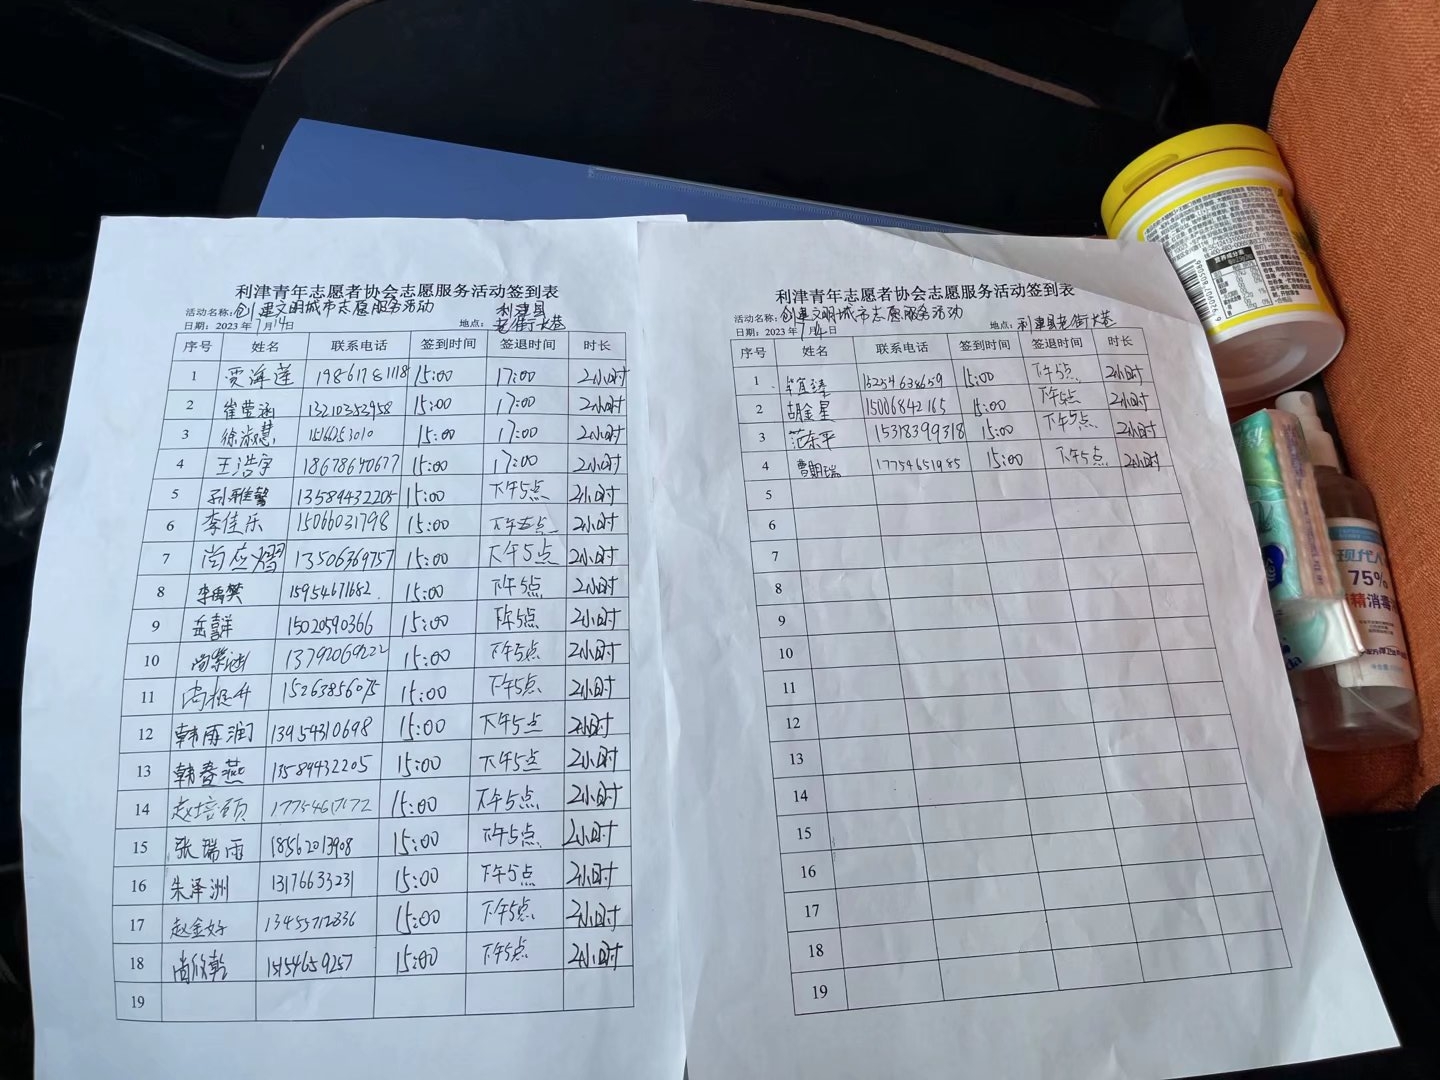 利津青年志愿者协会志愿服务活动签到表
活动名称:创建文明城市志愿服务活动
日期: 2023年7月14日 地点: 利津县老街长巷
序号 姓名 联系电话 签到时间 签退时间 时长
1 贾海莲 19861781118 15:00 17:00 2小时
2 崔莹涵 13210352958 15:00 17:00 2小时
3 徐淑慧 15:00 17:00 2小时
4 王浩宇 18678640677 15:00 17:00 2小时
5 孙雅馨 13589432205 15:00 下午5点 2小时
6 李佳乐 15066031798 15:00 下午五点 2小时
7 尚应熠 13506369757 15:00 下午5点 2小时
8 15954671682 15:00 下午5点 2小时
9 15020590366 15:00 下午5点 2小时
10 13792069222 15:00 下午5点 2小时
11 尚振升 15263856075 15:00 下午5点 2小时
12 韩雨润 13954310698 15:00 下午5点 2小时
13 韩春燕 13589432205 15:00 下午5点 2小时
14 赵培硕 15:00 下午5点 2小时
15 张瑞雨 18562013908 15:00 下午5点 2小时
16 朱泽洲 13176633231 15:00 下午5点 2小时
17 赵金好 13455712836 15:00 下午5点 2小时
18 尚欣乾 15154659257 15:00 下午5点 2小时
19
利津青年志愿者协会志愿服务活动签到表
活动名称:创建文明城市志愿服务活动
日期: 2023年7月14日 地点: 利津县老街长巷
序号 姓名 联系电话 签到时间 签退时间 时长
1 13254638659 15:00 下午5点 2小时
2 胡金星 15006842165 15:00 下午5点 2小时
3 范东平 15318399318 15:00 下午5点 2小时
4 曹朝瑞 17754651985 15:00 下午5点 2小时
5
6
7
8
9
10
11
12
13
14
15
16
17
18
19
营养成分表
现代
75%
精消毒